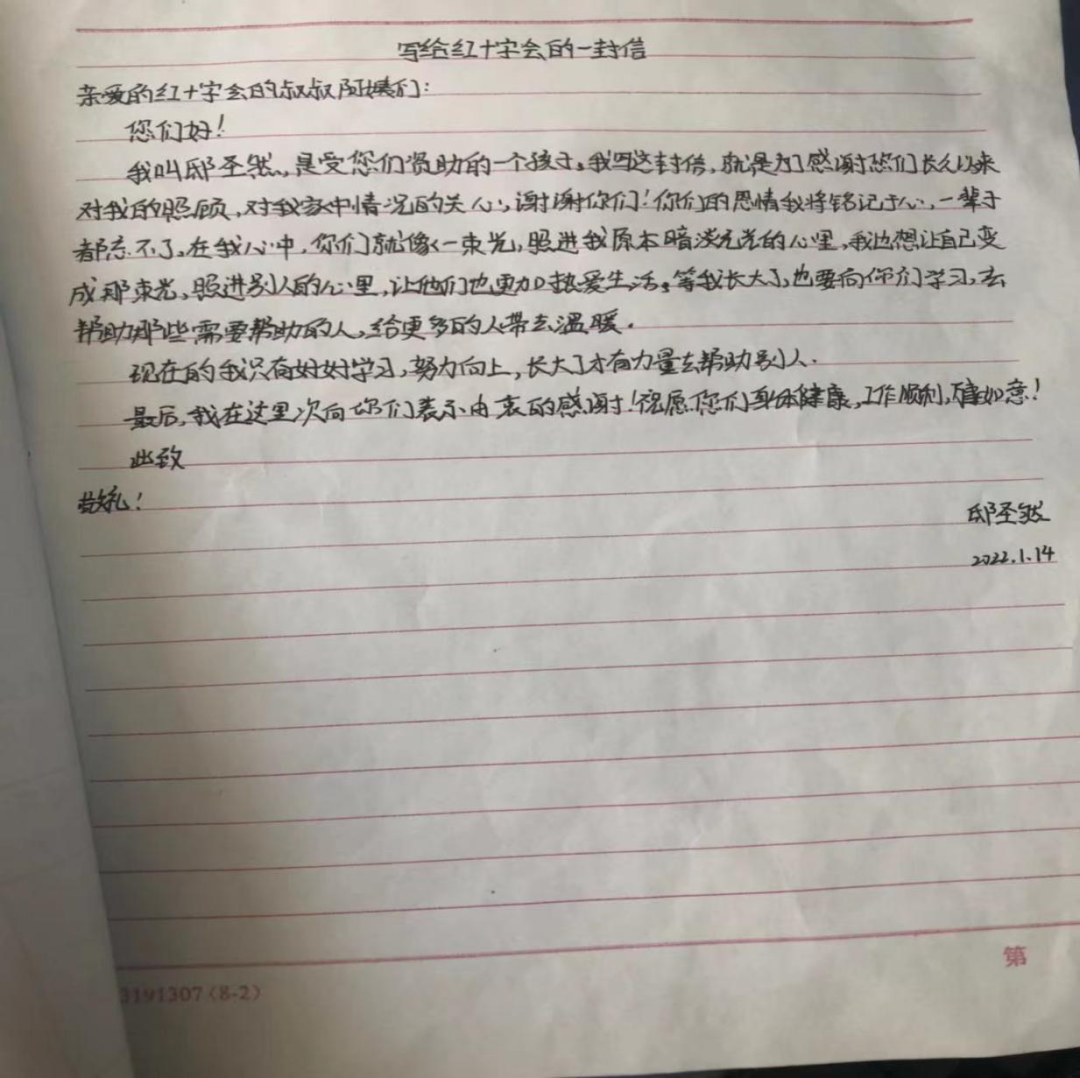 写给红十字会的一封信
亲爱的红十字会的叔叔阿姨们:
您们好!
我叫邸圣然,是受您们资助的一个孩子,我写这封信,就是为了感谢您们长久以来
对我的照顾,对我家中情况的关心,谢谢你们!你们的恩情我将铭记于心,一辈子
都忘不了,在我心中,你们就像一束光,照进我原本暗淡无光的心里,我也想让自己变
成那束光,照进别人的心里,让他们也更加热爱生活,等我长大了,也要向你们学习,去
帮助那些需要帮助的人,给更多的人带去温暖.
现在的我只有好好学习,努力向上,长大了才有力量去帮助别人.
最后,我在这里次向你们表示由衷的感谢!祝愿您们身体健康,工作顺利,万事如意!
此致
敬礼!
邸圣然
2022.1.14
第
3191307(8-2)